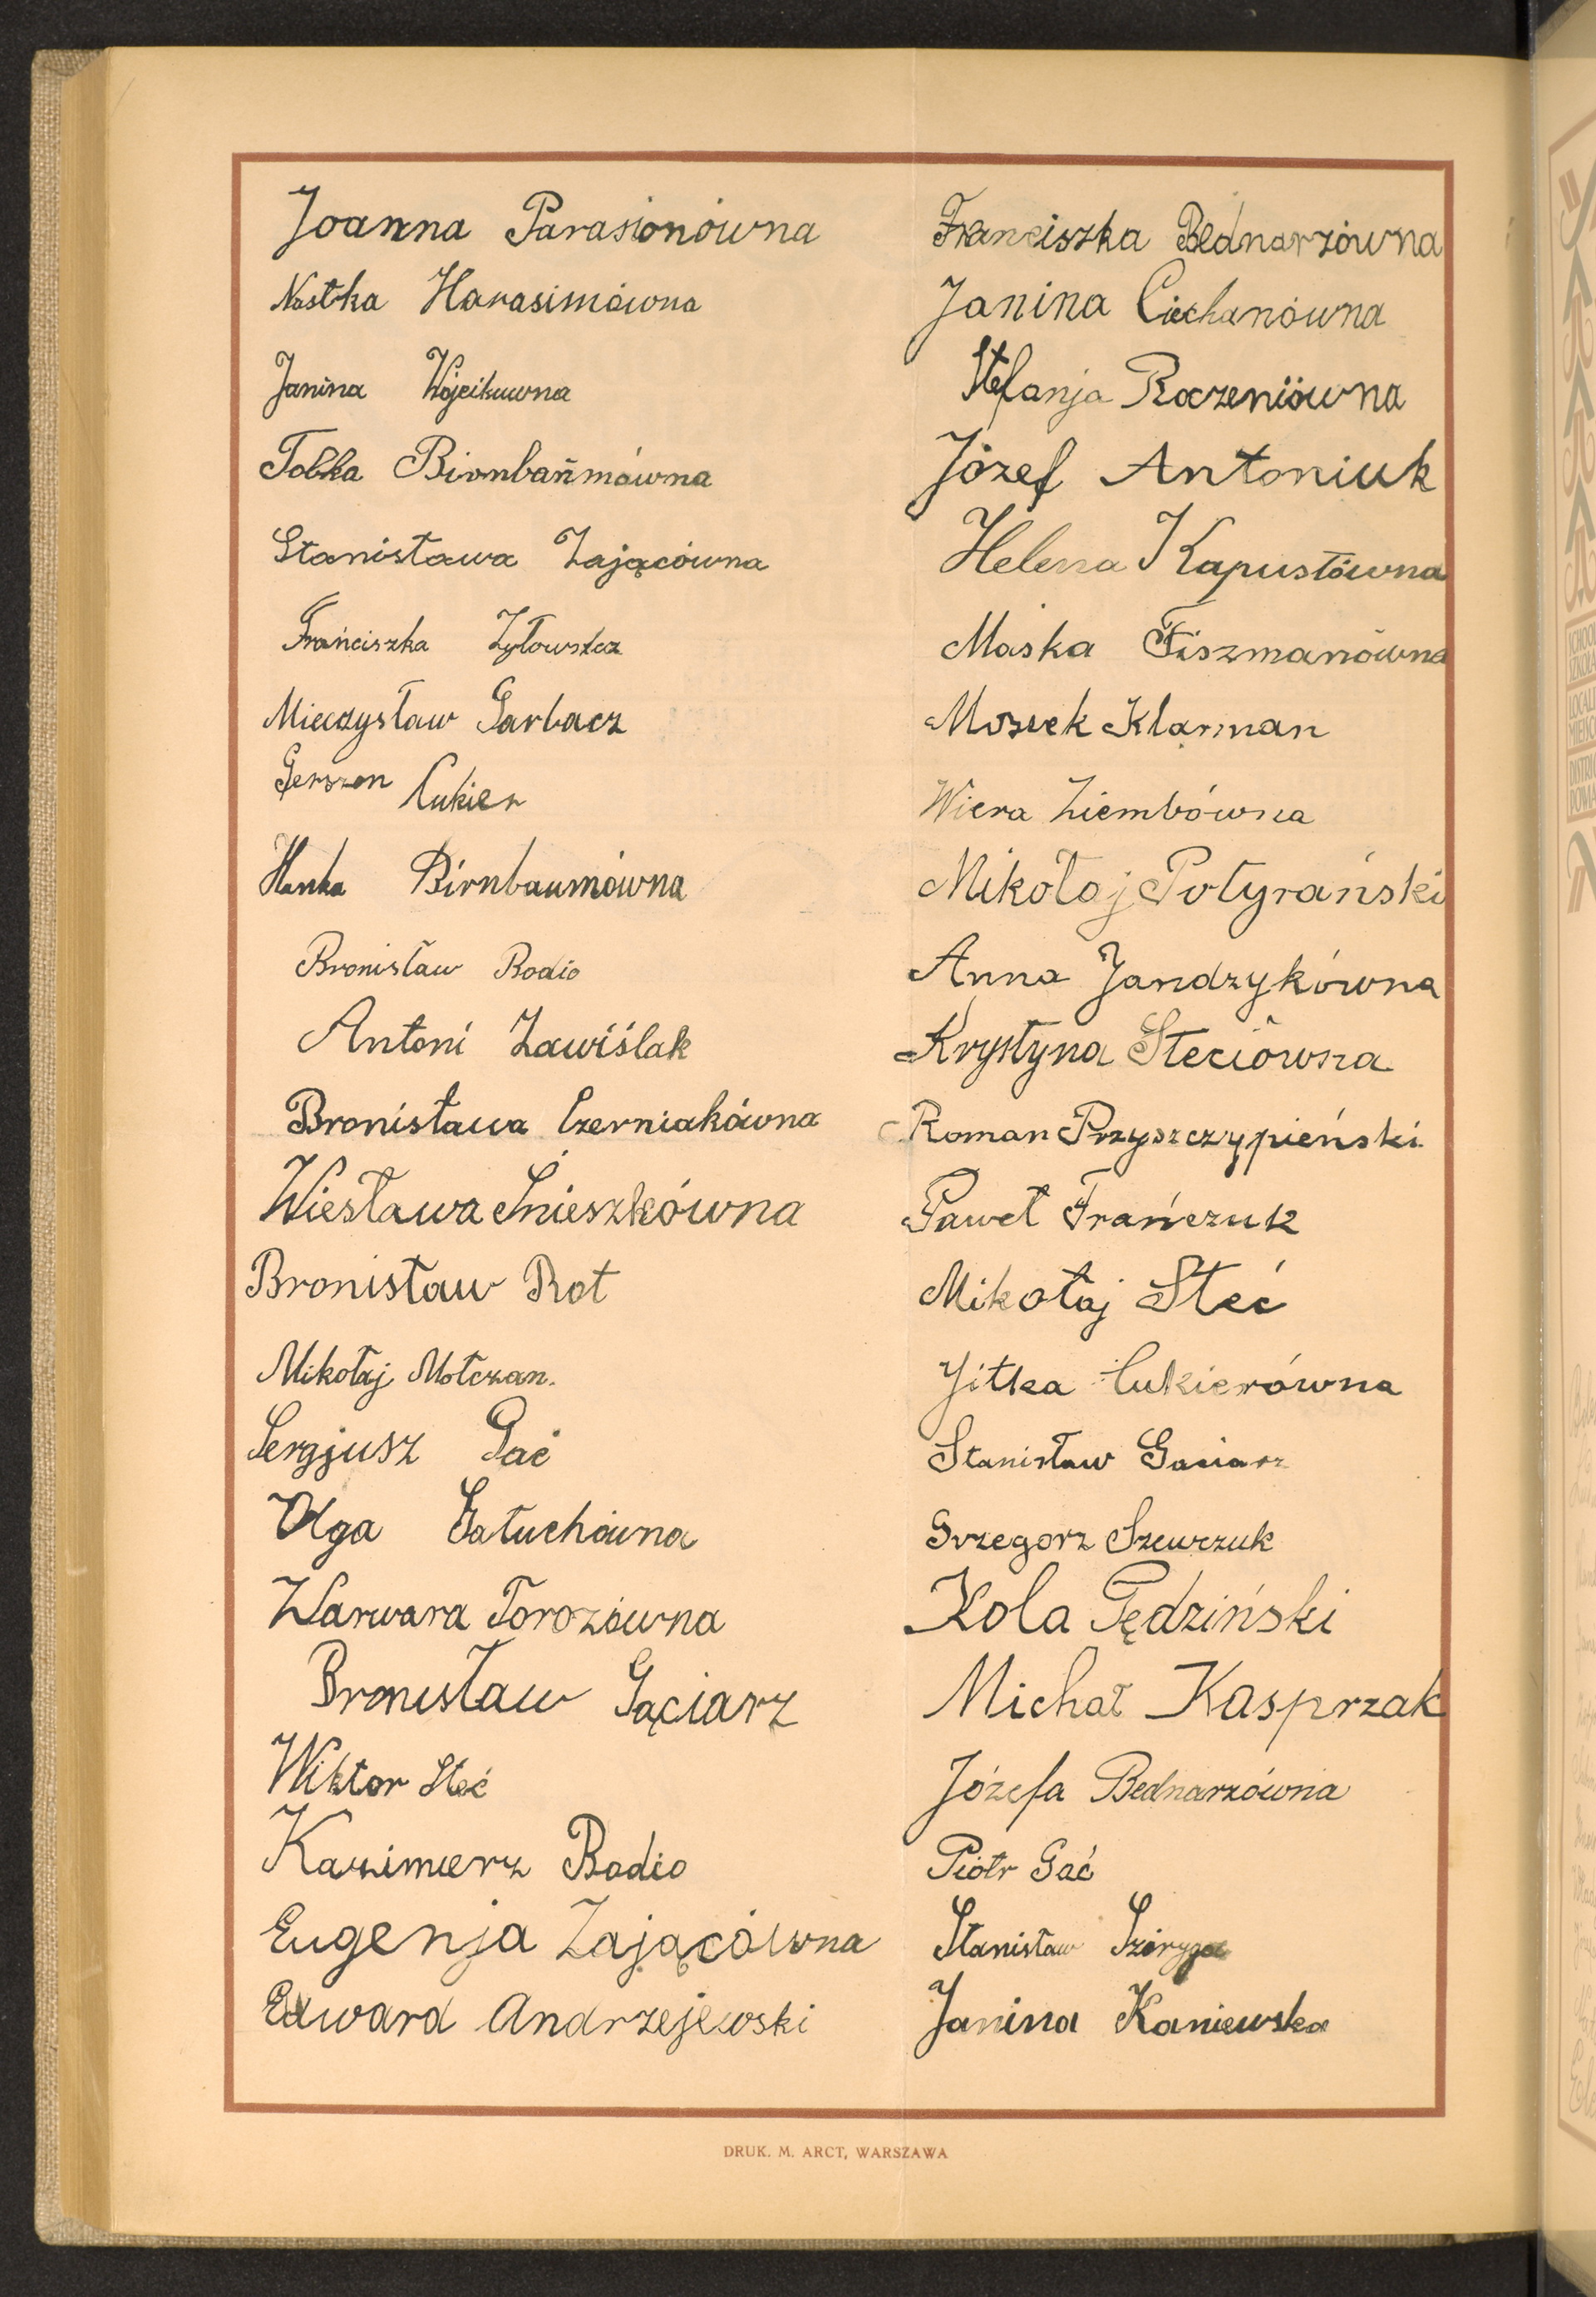 Joanna Parasionówna
Nastka Harasimówna
Janina Wójcikuwna
Tobka Birnbańmówna
Stanisława Zającówna
Frańciszka Zyłowska
Mieczysław Garbacz
Gerszon Cukier
Hanka Birnbaumówna
Bronisław Rodio
Antoni Zawiślak
Bronisława Czerniakówna
Wiesława Śnieszkówna
Bronisław Rot
Mikołaj Mołczan.
Sergjusz Gać
Olga Sałuchówna
Warwara Torozówna
Bronisław Gąciarz
Wiktor Steć
Kazimierz Rodio
Eugenja Zającówna
Edward Andrzejewski
Franciszka Bednarzówna
Janina Ciechanówna
Stefanja Roczeniówna
Józef Antoniuk
Helena Kapustówna
Maska Fiszmanówna
Moszek Klarman
Wiera Ziembówna
Mikołaj Potyrański
Anna Jandzykówna
Krystyna Steciówna
Roman Przyszczypieński
Paweł Frańczuk
Mikołaj Steć
Jitka Cukierówna
Stanisław Gaciarz
Grzegorz Szewczuk
Kola Gędziński
Michał Kasprzak
Józefa Bednarzówna
Piotr Gać
Stanisław
Janina Kaniewska
DRUK. M. ARCT, WARSZAWA